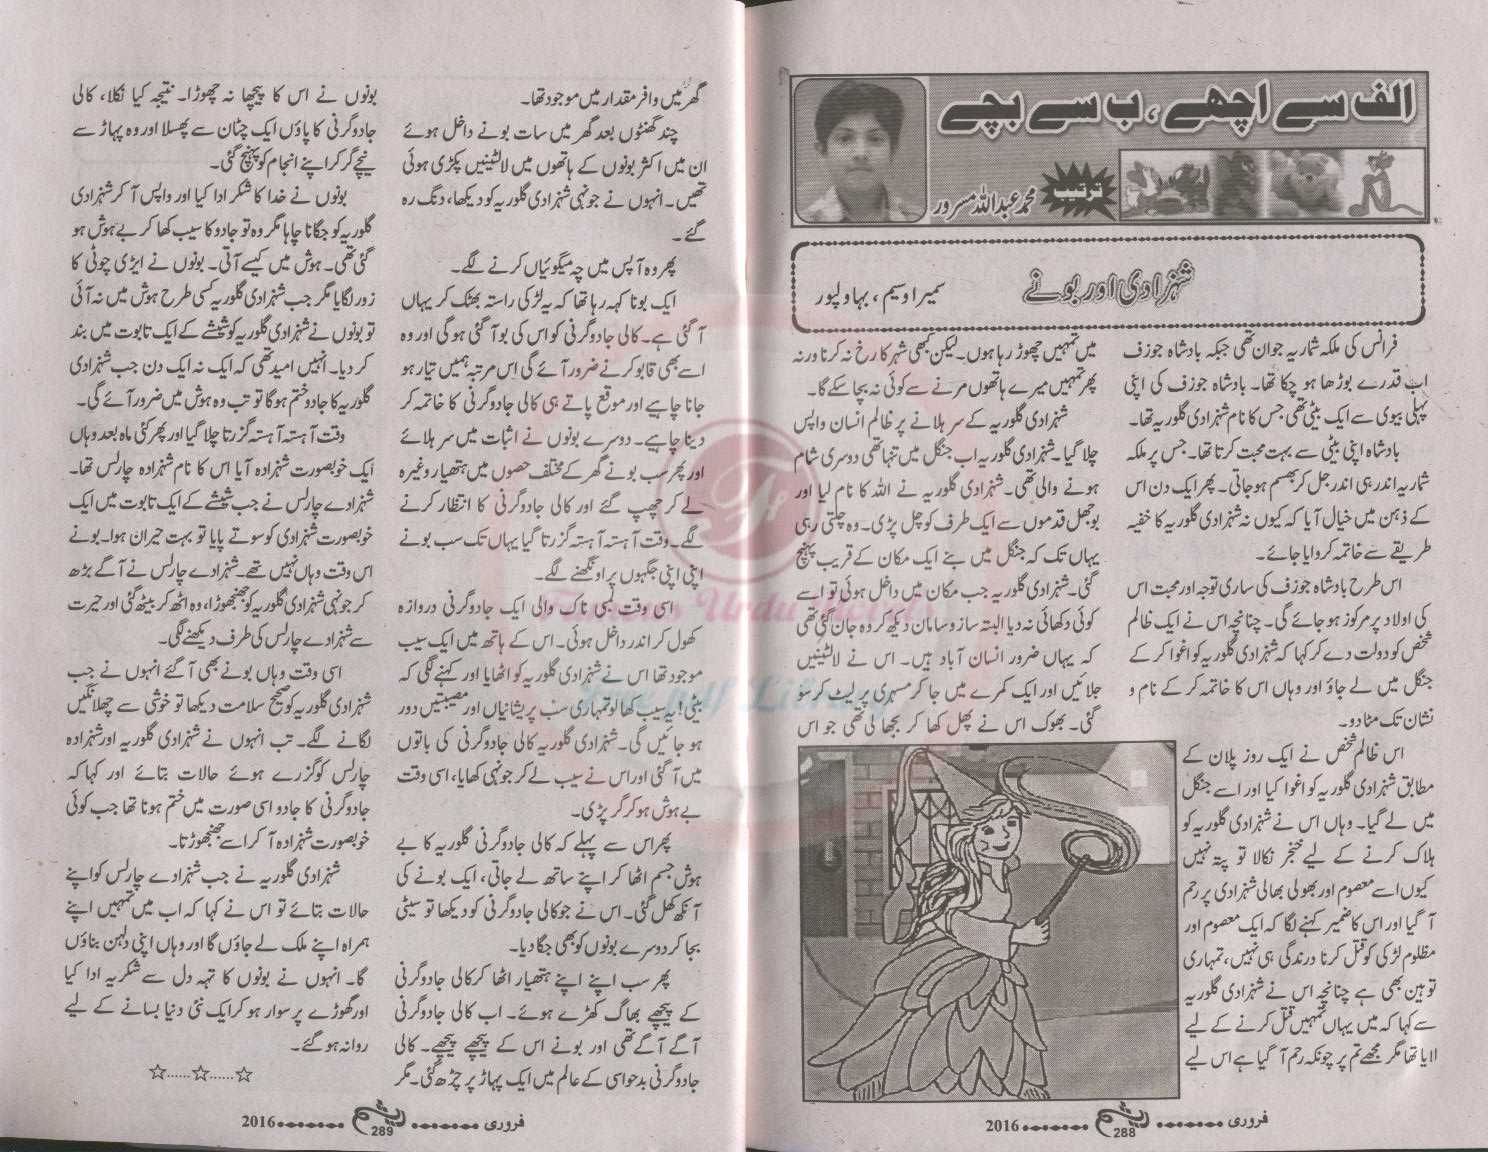 الف سے اچھے، ب سے بچے
ترتیب
محمد عبداللہ مسرور
شہزادی اور بونے
سمیرا وسیم، بہاولپور
فرانس کی ملکہ شماریہ جوان تھی جبکہ بادشاہ جوزف
اب قدرے بوڑھا ہو چکا تھا۔ بادشاہ جوزف کی اپنی
پہلی بیوی سے ایک بیٹی تھی جس کا نام شہزادی گلوریہ تھا۔
بادشاہ اپنی بیٹی سے بہت محبت کرتا تھا۔ جس پر ملکہ
شماریہ اندر ہی اندر جل کر بھسم ہو جاتی۔ پھر ایک دن اس
کے ذہن میں خیال آیا کہ کیوں نہ شہزادی گلوریہ کا خفیہ
طریقے سے خاتمہ کروایا جائے۔
اس طرح بادشاہ جوزف کی ساری توجہ اور محبت اس
کی اولاد پر مرکوز ہو جائے گی۔ چنانچہ اس نے ایک ظالم
شخص کو دولت دے کر کہا کہ شہزادی گلوریہ کو اغوا کر کے
جنگل میں لے جاؤ اور وہاں اس کا خاتمہ کر کے نام و
نشان تک مٹا دو۔
اس ظالم شخص نے ایک روز پلان کے
مطابق شہزادی گلوریہ کو اغوا کیا اور اسے جنگل
میں لے گیا۔ وہاں اس نے شہزادی گلوریہ کو
ہلاک کرنے کے لیے خنجر نکالا تو پتہ نہیں
کیوں اسے معصوم اور بھولی بھالی شہزادی پر رحم
آ گیا اور اس کا ضمیر کہنے لگا کہ ایک معصوم اور
مظلوم لڑکی کو قتل کرنا درندگی ہی نہیں، تمہاری
توہین بھی ہے چنانچہ اس نے شہزادی گلوریہ
سے کہا کہ میں یہاں تمہیں قتل کرنے کے لیے
لایا تھا مگر مجھے تم پر چونکہ رحم آ گیا ہے اس لیے
میں تمہیں چھوڑ رہا ہوں۔ لیکن کبھی شہر کا رخ نہ کرنا ورنہ
پھر تمہیں میرے ہاتھوں مرنے سے کوئی نہ بچا سکے گا۔
شہزادی گلوریہ کے سر ہلانے پر ظالم انسان واپس
چلا گیا۔ شہزادی گلوریہ اب جنگل میں تنہا تھی دوسری شام
ہونے والی تھی۔ شہزادی گلوریہ نے اللہ کا نام لیا اور
بوجھل قدموں سے ایک طرف کو چل پڑی۔ وہ چلتی رہی
یہاں تک کہ جنگل میں بنے ایک مکان کے قریب پہنچ
گئی۔ شہزادی گلوریہ جب مکان میں داخل ہوئی تو اسے
کوئی دکھائی نہ دیا البتہ ساز و سامان دیکھ کر وہ جان گئی تھی
کہ یہاں ضرور انسان آباد ہیں۔ اس نے لالٹینیں
جلائیں اور ایک کمرے میں جا کر مسہری پر لیٹ کر سو
گئی۔ بھوک اس نے پھل کھا کر بجھا لی تھی جو اس
فروری ........ ریشم ........ 2016
288
گھر میں وافر مقدار میں موجود تھا۔
چند گھنٹوں بعد گھر میں سات بونے داخل ہوئے
ان میں اکثر بونوں کے ہاتھوں میں لالٹینیں پکڑی ہوئی
تھیں۔ انہوں نے جونہی شہزادی گلوریہ کو دیکھا، دنگ رہ
گئے۔
پھر وہ آپس میں چہ میگوئیاں کرنے لگے۔
ایک بونا کہہ رہا تھا کہ یہ لڑکی راستہ بھٹک کر یہاں
آ گئی ہے۔ کالی جادوگرنی کو اس کی بو آ گئی ہوگی اور وہ
اسے بھی قابو کرنے ضرور آئے گی اس مرتبہ ہمیں تیار ہو
جانا چاہیے اور موقع پاتے ہی کالی جادوگرنی کا خاتمہ کر
دینا چاہیے۔ دوسرے بونوں نے اثبات میں سر ہلائے
اور پھر سب بونے گھر کے مختلف حصوں میں ہتھیار وغیرہ
لے کر چھپ گئے اور کالی جادوگرنی کا انتظار کرنے
لگے۔ وقت آہستہ آہستہ گزرتا گیا یہاں تک سب بونے
اپنی اپنی جگہوں پر اونگھنے لگے۔
اسی وقت لمبی ناک والی ایک جادوگرنی دروازہ
کھول کر اندر داخل ہوئی۔ اس کے ہاتھ میں ایک سیب
موجود تھا اس نے شہزادی گلوریہ کو اٹھایا اور کہنے لگی کہ
بیٹی! یہ سیب کھا لو تمہاری سب پریشانیاں اور مصیبتیں دور
ہو جائیں گی۔ شہزادی گلوریہ کالی جادوگرنی کی باتوں
میں آ گئی اور اس نے سیب لے کر جونہی کھایا، اسی وقت
بے ہوش ہو کر گر پڑی۔
پھر اس سے پہلے کہ کالی جادوگرنی گلوریہ کا بے
ہوش جسم اٹھا کر اپنے ساتھ لے جاتی، ایک بونے کی
آنکھ کھل گئی۔ اس نے جو کالی جادوگرنی کو دیکھا تو سیٹی
بجا کر دوسرے بونوں کو بھی جگا دیا۔
پھر سب اپنے اپنے ہتھیار اٹھا کر کالی جادوگرنی
کے پیچھے بھاگ کھڑے ہوئے۔ اب کالی جادوگرنی
آگے آگے تھی اور بونے اس کے پیچھے پیچھے۔ کالی
جادوگرنی بدحواسی کے عالم میں ایک پہاڑ پر چڑھ گئی۔ مگر
بونوں نے اس کا پیچھا نہ چھوڑا۔ نتیجہ کیا نکلا، کالی
جادوگرنی کا پاؤں ایک چٹان سے پھسلا اور وہ پہاڑ سے
نیچے گر کر اپنے انجام کو پہنچ گئی۔
بونوں نے خدا کا شکر ادا کیا اور واپس آ کر شہزادی
گلوریہ کو جگانا چاہا مگر وہ تو جادو کا سیب کھا کر بے ہوش ہو
گئی تھی۔ ہوش میں کیسے آتی۔ بونوں نے ایڑی چوٹی کا
زور لگایا مگر جب شہزادی گلوریہ کسی طرح ہوش میں نہ آئی
تو بونوں نے شہزادی گلوریہ کو شیشے کے ایک تابوت میں بند
کر دیا۔ انہیں امید تھی کہ ایک نہ ایک دن جب شہزادی
گلوریہ کا جادو ختم ہوگا تو تب وہ ہوش میں ضرور آئے گی۔
وقت آہستہ آہستہ گزرتا چلا گیا اور پھر کئی ماہ بعد وہاں
ایک خوبصورت شہزادہ آیا اس کا نام شہزادہ چارلس تھا۔
شہزادے چارلس نے جب شیشے کے ایک تابوت میں ایک
خوبصورت شہزادی کو سوتے پایا تو بہت حیران ہوا۔ بونے
اس وقت وہاں نہیں تھے۔ شہزادے چارلس نے آگے بڑھ
کر جونہی شہزادی گلوریہ کو جھنجھوڑا، وہ اٹھ کر بیٹھ گئی اور حیرت
سے شہزادے چارلس کی طرف دیکھنے لگی۔
اسی وقت وہاں بونے بھی آ گئے انہوں نے جب
شہزادی گلوریہ کو صحیح سلامت دیکھا تو خوشی سے چھلانگیں
لگانے لگے۔ تب انہوں نے شہزادی گلوریہ اور شہزادہ
چارلس کو گزرے ہوئے حالات بتائے اور کہا کہ
جادوگرنی کا جادو اسی صورت میں ختم ہونا تھا جب کوئی
خوبصورت شہزادہ آ کر اسے جھنجھوڑتا۔
شہزادی گلوریہ نے جب شہزادے چارلس کو اپنے
حالات بتائے تو اس نے کہا کہ اب میں تمہیں اپنے
ہمراہ اپنے ملک لے جاؤں گا اور وہاں اپنی دلہن بناؤں
گا۔ انہوں نے بونوں کا تہہ دل سے شکریہ ادا کیا
اور گھوڑے پر سوار ہو کر ایک نئی دنیا بسانے کے لیے
روانہ ہو گئے۔
☆......☆......☆
فروری ........ ریشم ........ 2016
289
Famous Urdu Novels
Free pdf Library